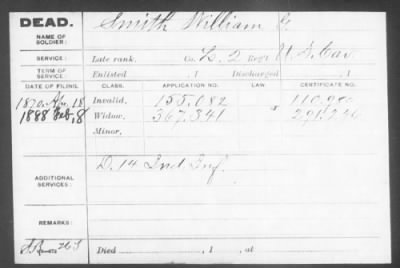 DEAD. Smith William G.
NAME OF SOLDIER:
SERVICE: Late rank, Co. L. 2 Reg't U.S. Cav.
TERM OF SERVICE: Enlisted , 1 Discharged , 1
DATE OF FILING. CLASS. APPLICATION NO. LAW. CERTIFICATE NO.
1870. Apr. 18 Invalid, 155.082
1888 Feb. 8 Widow, 367.341
Minor,
D. 14 Ind. Inf.
ADDITIONAL SERVICES:
REMARKS:
Died , 1 , at